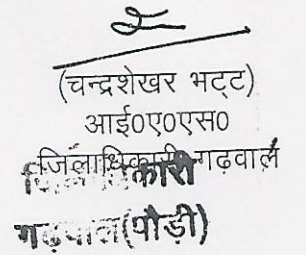 (चन्द्रशेखर भट्ट)
आई०ए०एस०
जिलाधिकारी गढ़वाल
जिलाधिकारी
गढ़वाल(पौड़ी)